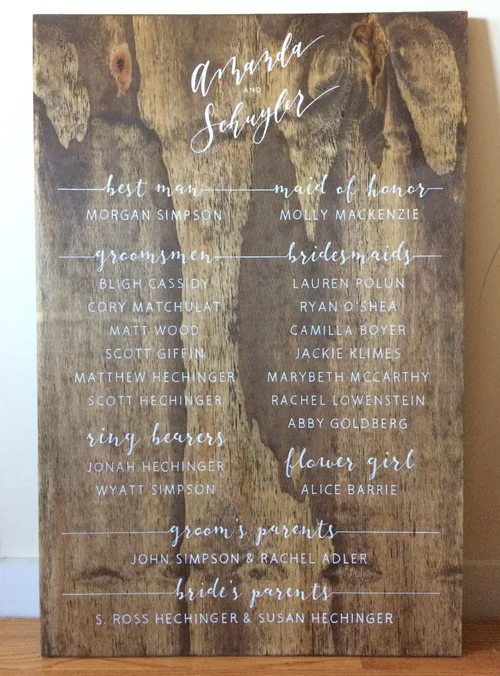 Amanda
AND
Schuyler
best man
MORGAN SIMPSON
maid of honor
MOLLY MACKENZIE
groomsmen
BLIGH CASSIDY
CORY MATCHULAT
MATT WOOD
SCOTT GIFFIN
MATTHEW HECHINGER
SCOTT HECHINGER
bridesmaids
LAUREN POLUN
RYAN O'SHEA
CAMILLA BOYER
JACKIE KLIMES
MARYBETH MCCARTHY
RACHEL LOWENSTEIN
ABBY GOLDBERG
ring bearers
JONAH HECHINGER
WYATT SIMPSON
flower girl
ALICE BARRIE
groom's parents
JOHN SIMPSON & RACHEL ADLER
bride's parents
S. ROSS HECHINGER & SUSAN HECHINGER